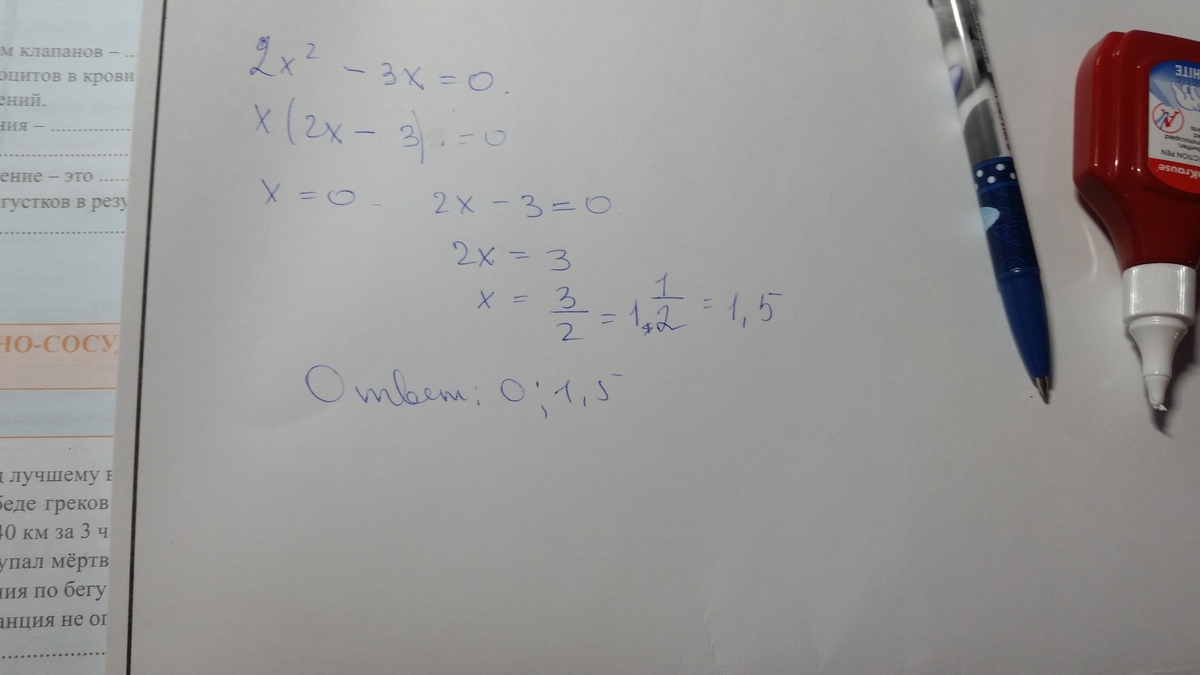 м клапанов – ...
оцитов в крови
ений.
ния – ..................
ение – это ......
густков в резу
НО-СОСУД
д лучшему в
беде греков
40 км за 3 ч
упал мёртв
ния по бегу
анция не ог
2x² - 3x = 0.
x(2x - 3) = 0
x = 0 2x - 3 = 0
2x = 3
x = 3/2 = 1 1/2 = 1,5
Ответ: 0; 1,5
WHITE
CTION PEN
Krause